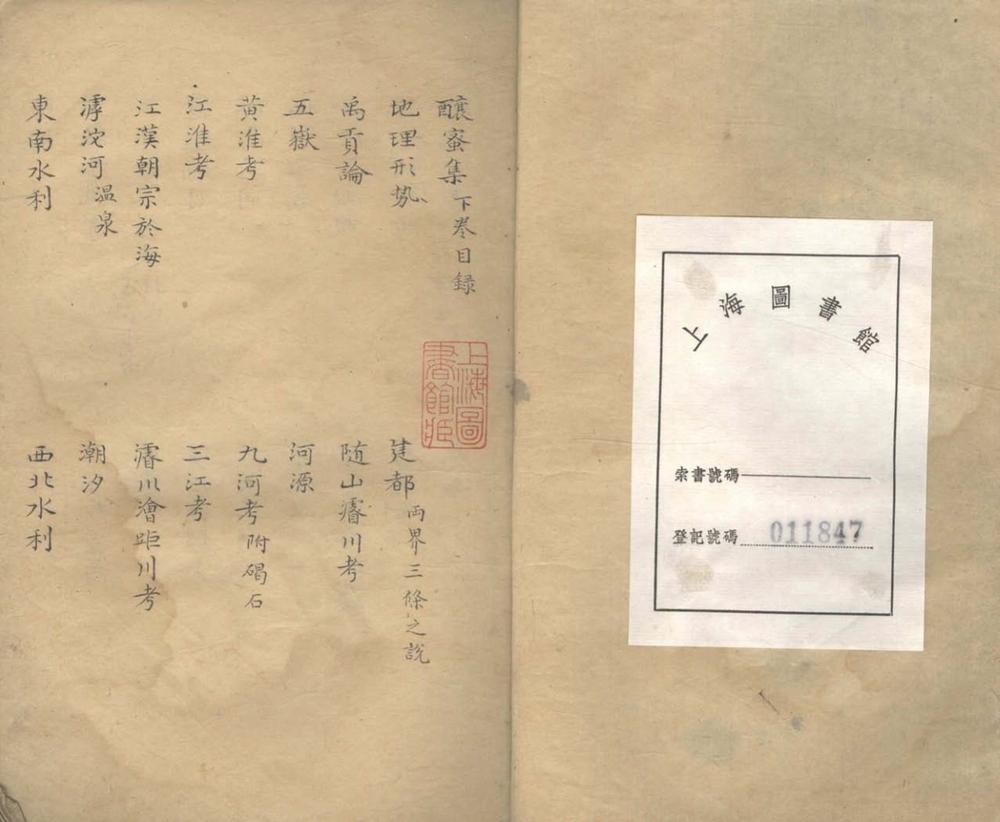 上海圖書館
索書號碼
登記號碼 011847
釀蜜集 下卷目録
地理形勢
建都 两界三條之說
禹貢論
随山濬川考
五嶽
河源
黄淮考
九河考 附碣石
江淮考
三江考
江漢朝宗於海
濬川澮距川考
滹沱河 温泉
潮汐
東南水利
西北水利
上海圖書館藏